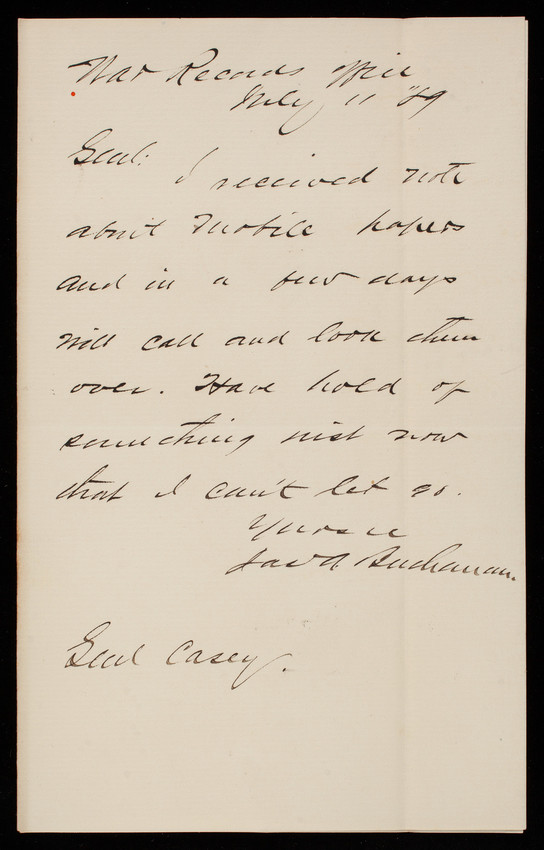 War Records Office
July 11 "89
Genl:
I received note
about Mobile papers
and in a few days
will call and look them
over. Have hold of
something just now
that I can't let go.
Yours
Jas A Buchanan
Genl Casey.